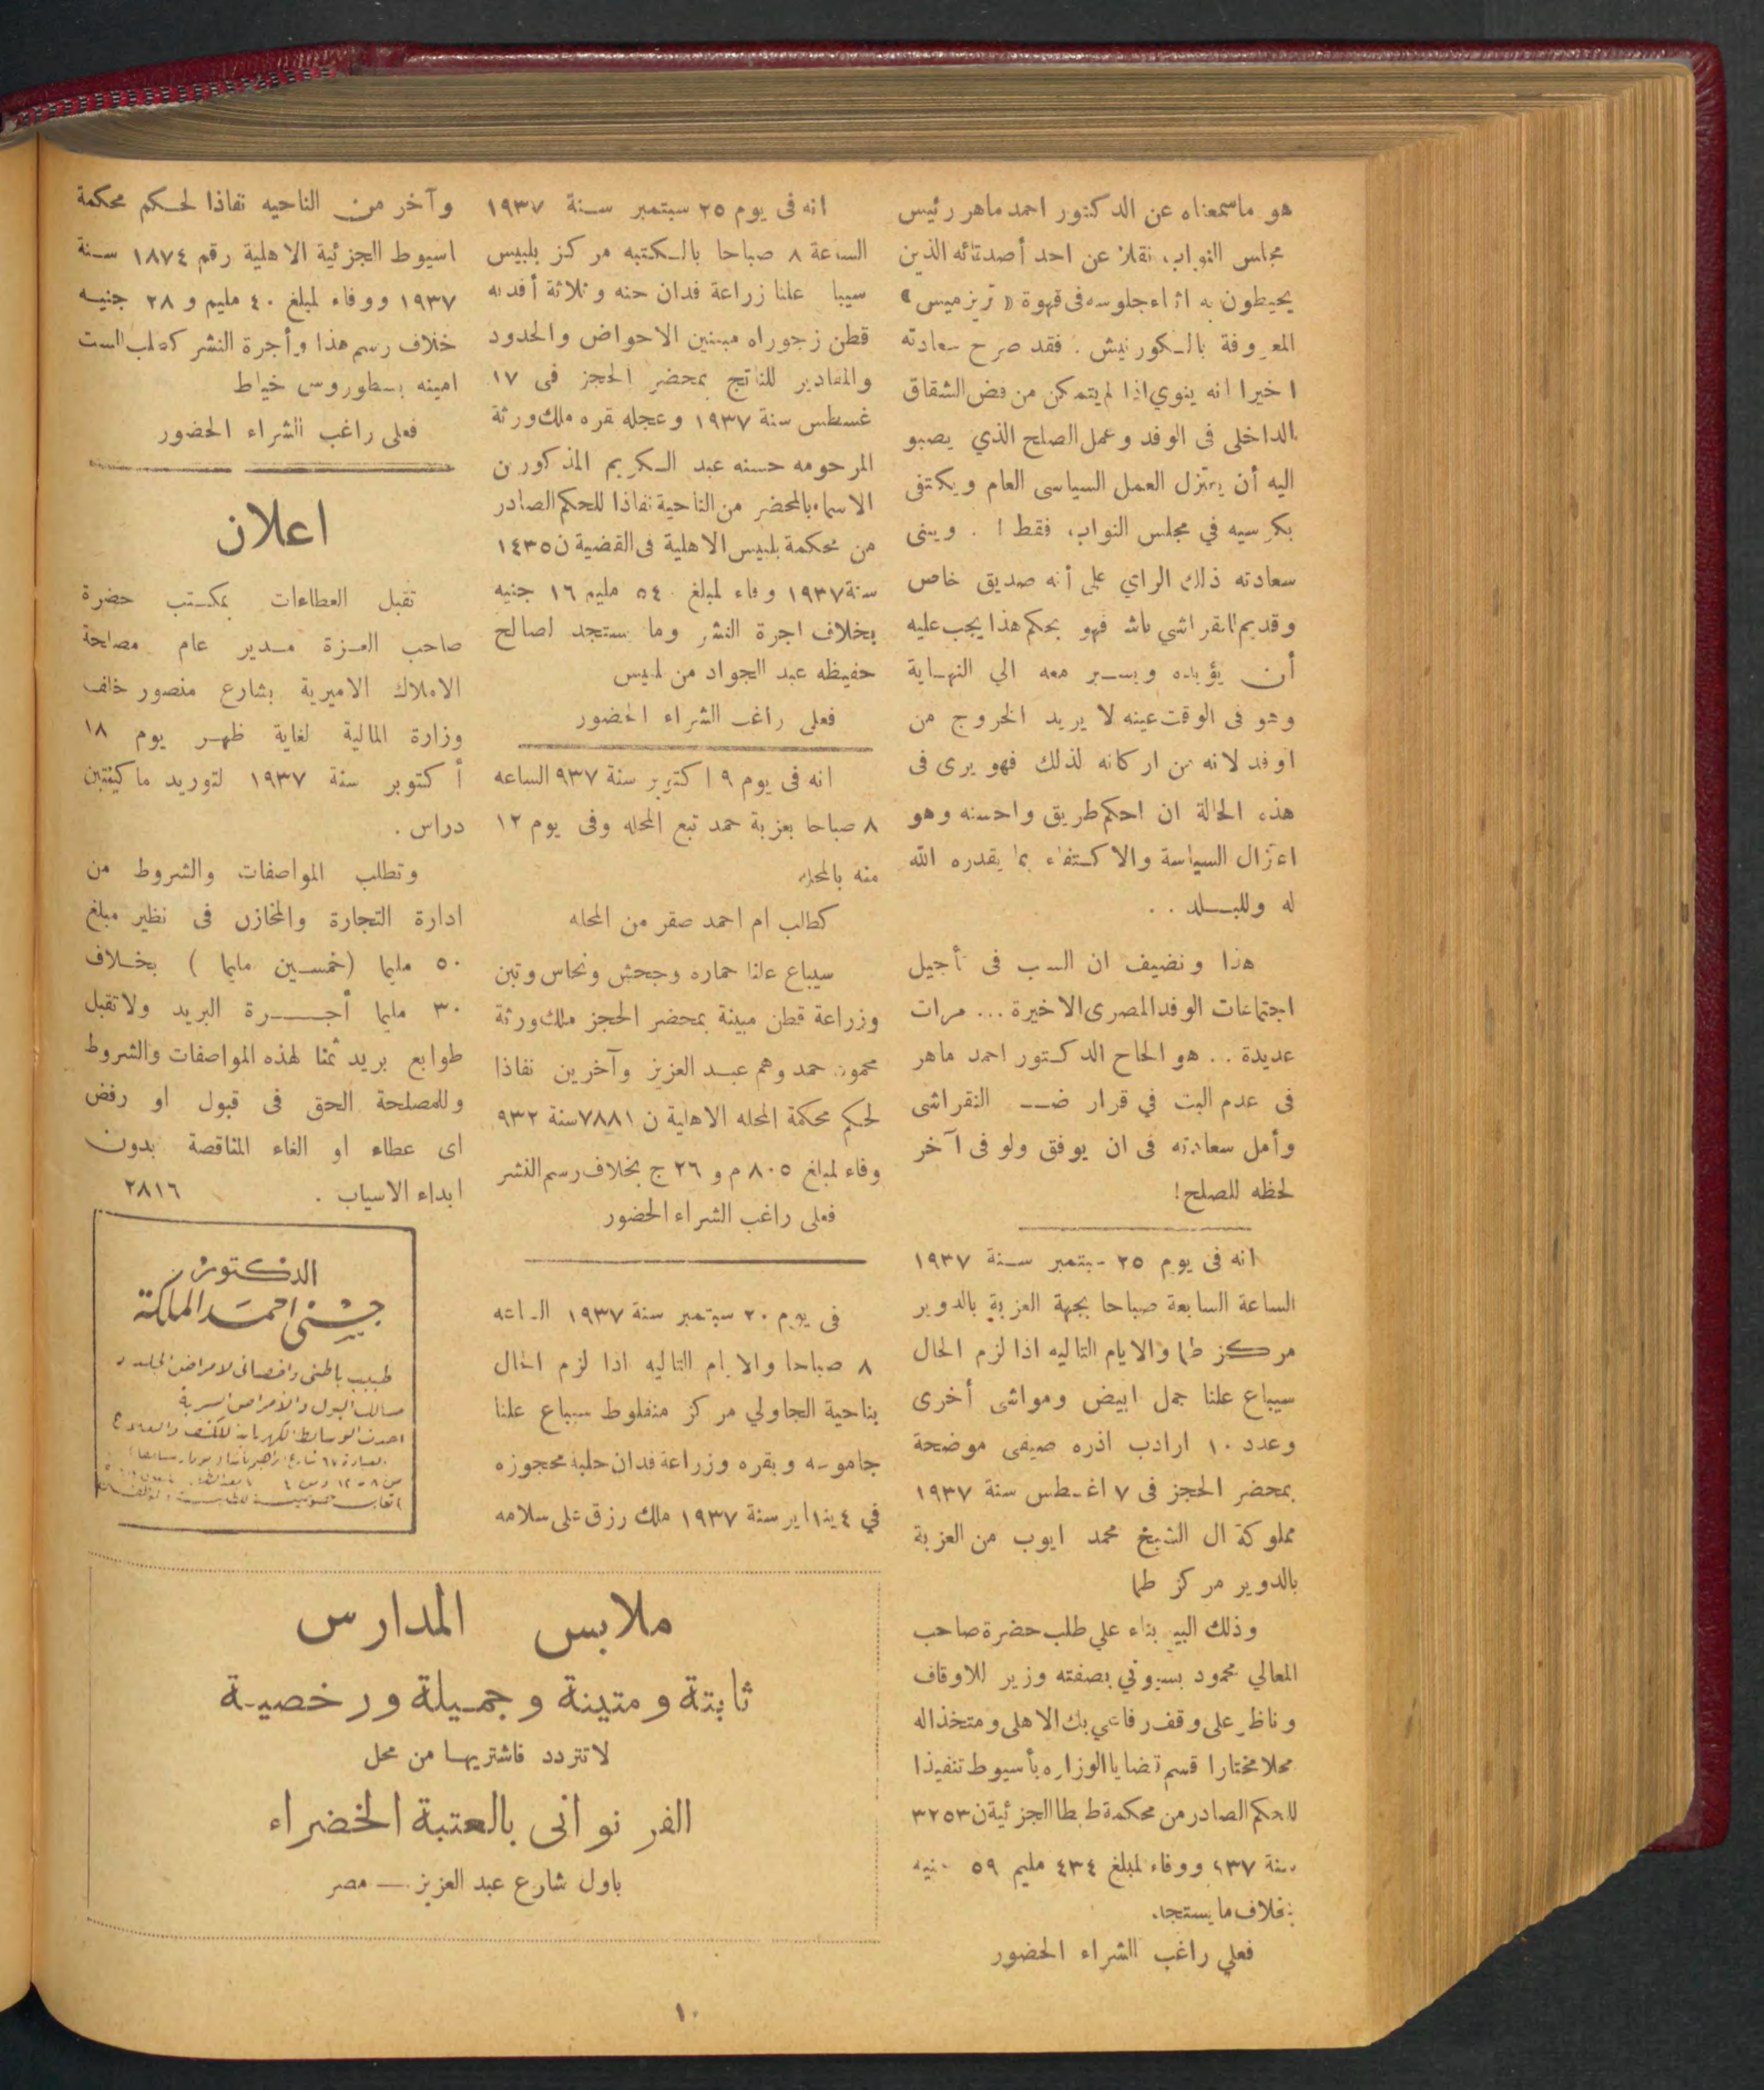 هو ماسمعناه عن الدكتور احمد ماهر رئيس
مجلس النواب، نقلا عن احد أصدقائه الذين
يحيطون به اثناء جلوسه فى قهوة « تريزميس »
المعروفة بالكورنيش . فقد صرح سعادته
اخيرا انه ينوي اذا لم يتمكن من فض الشقاق
الداخلى فى الوفد وعمل الصلح الذي يصبو
اليه أن يعتزل العمل السياسى العام ويكتفى
بكرسيه في مجلس النواب، فقط ! . ويبنى
سعادته ذلك الراي على أنه صديق خاص
وقديم للنقراشي باشا فهو بحكم هذا يجب عليه
أن يؤيده ويسير معه الي النهاية
وهو فى الوقت عينه لا يريد الخروج من
اوفد لانه من اركانه لذلك فهو يرى فى
هذه الحالة ان احكم طريق واحسنه وهو
اعتزال السياسة والاكتفاء بما يقدره الله
له وللبلد . .
هذا ونضيف ان السبب فى تأجيل
اجتماعات الوفد المصرى الاخيرة ... مرات
عديدة . . هو الحاح الدكتور احمد ماهر
فى عدم البت في قرار ضد النقراشى
وأمل سعادته فى ان يوفق ولو فى آخر
لحظه للصلح!
انه فى يوم ٢٥ سبتمبر سنة ١٩٣٧
الساعة السابعة صباحا بجهة العزبة بالدوير
مركز طما والايام التاليه اذا لزم الحال
سيباع علنا جمل ابيض ومواشى أخرى
وعدد ١٠ ارادب اذره صيفى موضحة
بمحضر الحجز فى ٧ اغسطس سنة ١٩٣٧
مملوكة ال الشيخ محمد ايوب من العزبة
بالدوير مركز طما
وذلك البيع بناء علي طلب حضرة صاحب
المعالي محمود بسيوني بصفته وزير للاوقاف
وناظر على وقف رفاعي بك الاهلى ومتخذا له
محلا مختارا قسم قضايا الوزاره بأسيوط تنفيذا
للحكم الصادر من محكمة طهطا الجزئية ن ٣٢٥٣
سنة ٩٣٧ ووفاء لمبلغ ٤٣٤ مليم ٥٩ جنيه
بخلاف ما يستجد.
فعلي راغب الشراء الحضور
انه فى يوم ٢٥ سبتمبر سنة ١٩٣٧
الساعة ٨ صباحا بالكتبه مركز بلبيس
سيبا علنا زراعة فدان حنه وثلاثة أفدنه
قطن زجوراه مبينين الاحواض والحدود
والمقادير للناتج بمحضر الحجز فى ١٧
غسطس سنة ١٩٣٧ وعجله بقره ملك ورثة
المرحومه حسنه عبد الكريم المذكورين
الاسماء بالمحضر من الناحية نفاذا للحكم الصادر
من محكمة بلبيس الاهلية فى القضية ن ١٤٣٥
سنة ١٩٣٧ وفاء لمبلغ ٥٤٠ مليم ١٦ جنيه
بخلاف اجرة النشر وما يستجد لصالح
حفيظه عبد الجواد من لبيس
فعلى راغب الشراء الحضور
انه فى يوم ٩ اكتوبر سنة ٩٣٧ الساعه
٨ صباحا بعزبة حمد تبع المحله وفى يوم ١٢
منه بالمحله
كطلب ام احمد صقر من المحله
سيباع علنا حماره وجحش ونحاس وتبن
وزراعة قطن مبينة بمحضر الحجز ملك ورثة
محمود حمد وهم عبد العزيز وآخرين نفاذا
لحكم محكمة المحله الاهلية ن ٧٨٨١ سنة ٩٣٢
وفاء لمبلغ ٨٠٥ م و ٢٦ ج بخلاف رسم النشر
فعلى راغب الشراء الحضور
فى يوم ٢٠ سبتمبر سنة ١٩٣٧ الساعه
٨ صباحا والايام التاليه اذا لزم الحال
بناحية الجاولي مركز منفلوط سيباع علنا
جاموسه وبقره وزراعة فدان حلبة محجوزه
في ٤ يناير سنة ١٩٣٧ ملك رزق على سلامه
وآخر من الناحيه نفاذا لحكم محكمة
اسيوط الجزئية الاهلية رقم ١٨٧٤ سنة
١٩٣٧ ووفاء لمبلغ ٤٠ مليم و ٢٨ جنيه
خلاف رسم هذا وأجرة النشر كطلب الست
امينه بسطوروس خياط
فعلى راغب الشراء الحضور
اعلان
تقبل العطاءات بمكتب حضرة
صاحب العزة مدير عام مصلحة
الاملاك الاميرية بشارع منصور خلف
وزارة المالية لغاية ظهر يوم ١٨
أكتوبر سنة ١٩٣٧ لتوريد ماكينتين
دراس .
وتطلب المواصفات والشروط من
ادارة التجارة والمخازن فى نظير مبلغ
٥٠ مليما (خمسين مليما ) بخلاف
٣٠ مليما أجرة البريد ولا تقبل
طوابع بريد ثمنا لهذه المواصفات والشروط
وللمصلحة الحق فى قبول او رفض
اى عطاء او الغاء المناقصة بدون
ابداء الاسباب . ٢٨١٦
الدكتور
حسنى احمد الملكة
طبيب باطنى واخصائى لامراض الجلد و
مسالك البول والامراض السرية
احدث الوسائط الكهربائية للكشف والعلاج
ملابس المدارس
ثابتة ومتينة وجميلة ورخصية
لا تتردد فاشتريها من محل
الفرنوانى بالعتبة الخضراء
باول شارع عبد العزيز — مصر
١٠